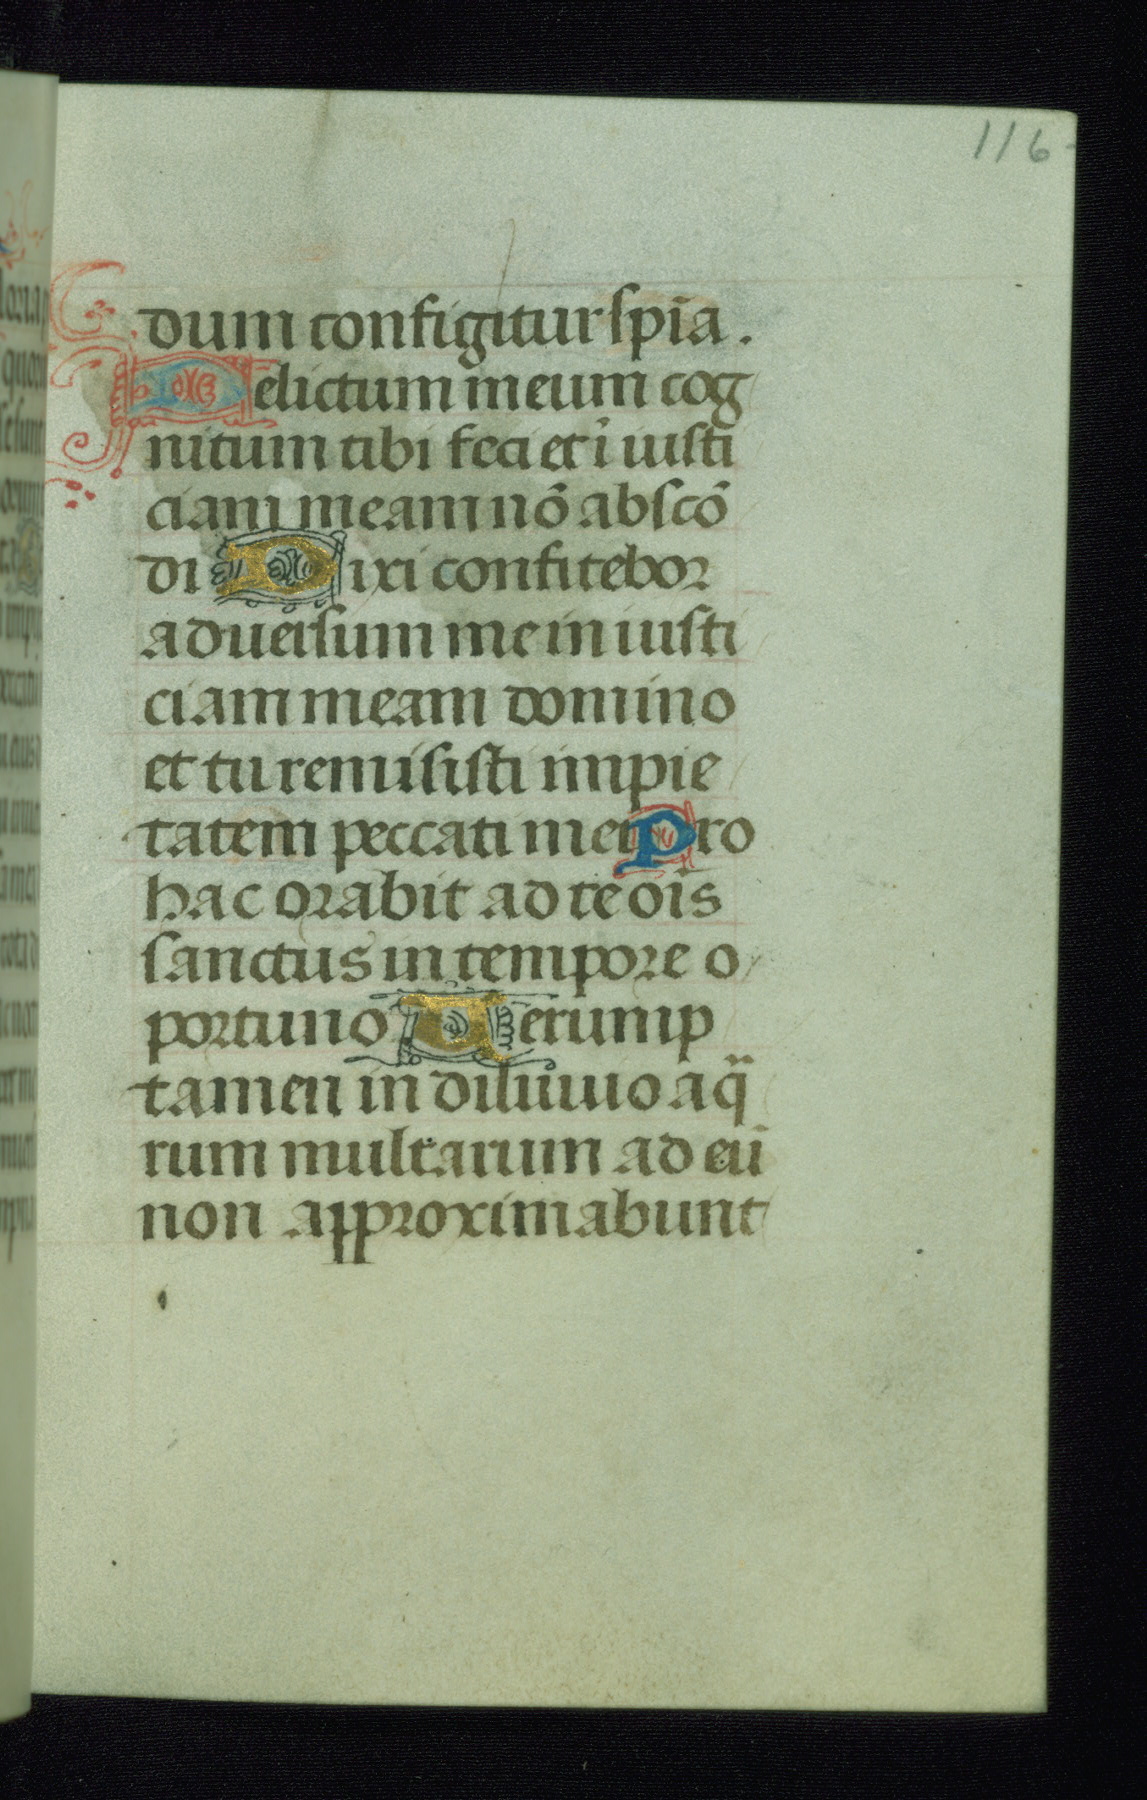 116
dum configitur spīa.
Delictum meum cog
nitum tibi feci et ī iusti
ciam meam nō abscō
di Dixi confitebor
aduersum me in iusti
ciam meam domino
et tu remisisti impie
tatem peccati mei Pro
hac orabit ad te oīs
sanctus in tempore o
portuno Uerump
tamen in diluuio aq̄
rum multarum ad eū
non approximabunt